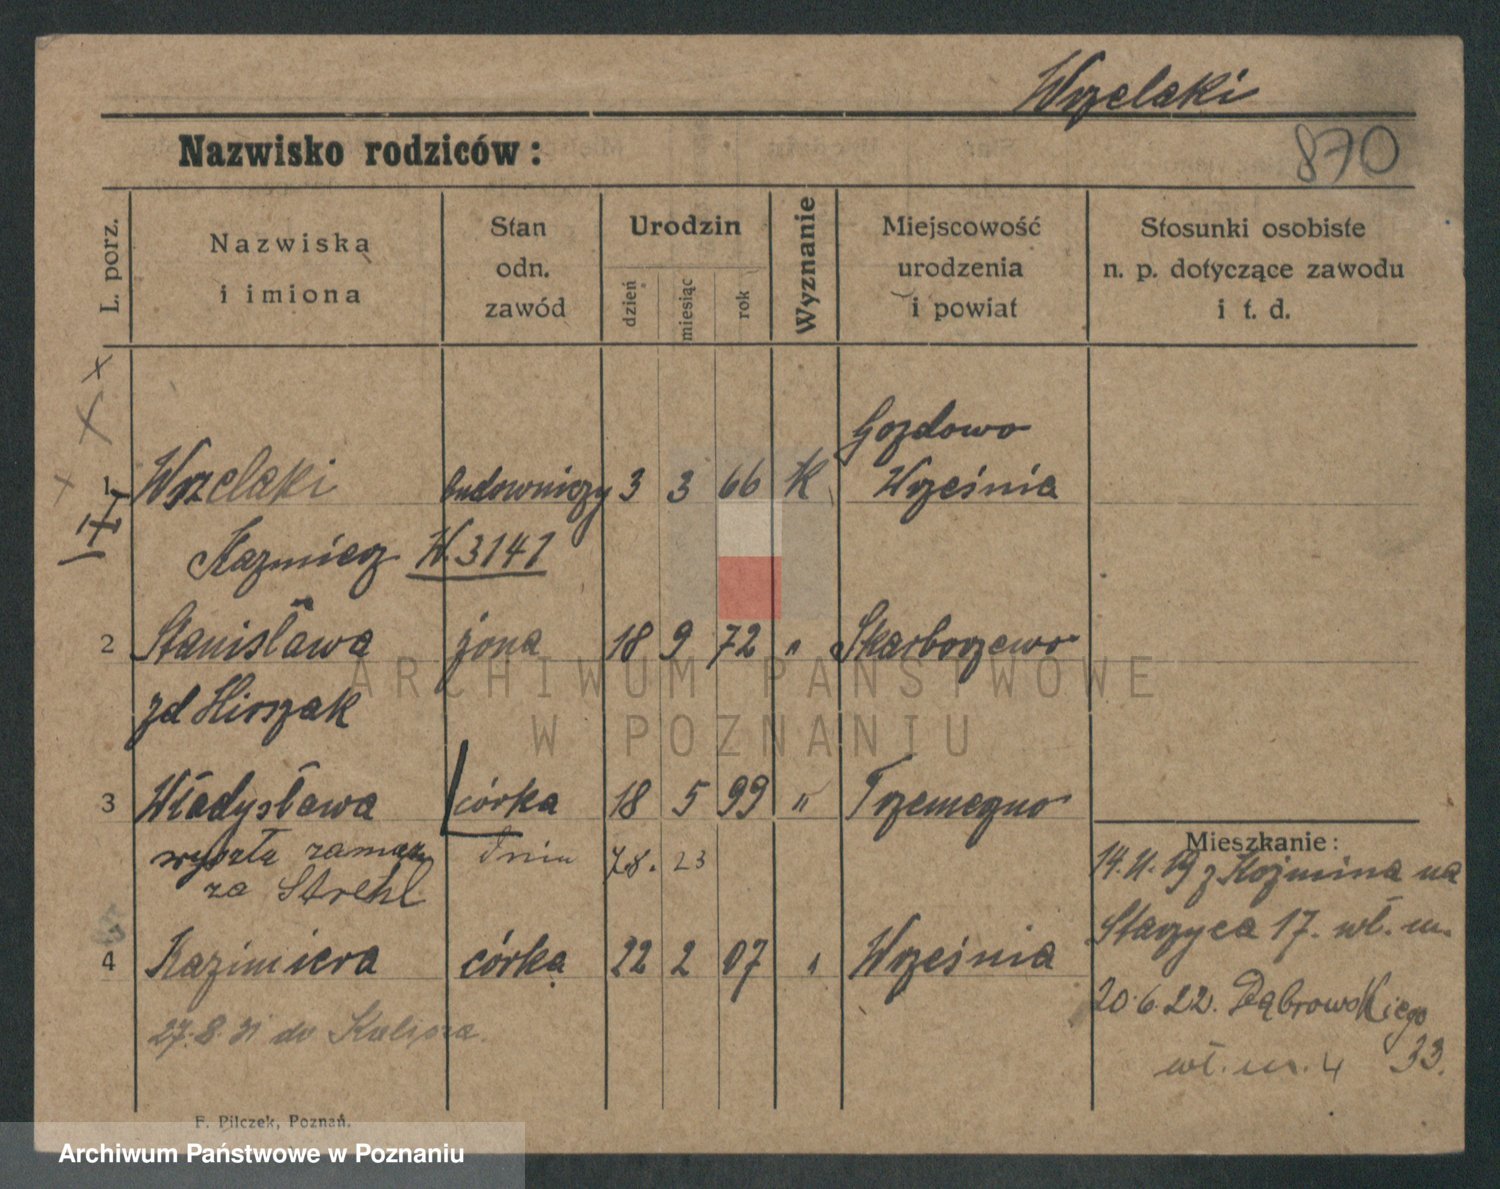 Wrzelaki
Nazwisko rodziców:
870
L. porz.
Nazwiska
i imiona
Stan
odn.
zawód
Urodzin
dzień
miesiąc
rok
Wyznanie
Miejscowość
urodzenia
i powiat
Stosunki osobiste
n. p. dotyczące zawodu
i t. d.
Gozdowo
1 Wrzelaki budowniczy 3 3 66 K Września
Kazmierz W.3141
2 Stanisława żona 18 9 72 " Skarborzewo
zd Hirszak
3 Władysława córka 18 5 99 " Trzemezno
wyszła zamąż dnia 7.8. 23
za Strehl
4 Kazimiera córka 22 2 07 " Września
27.8.31 do Kalisza.
Mieszkanie:
14.11.19 z Kozmina na
Starzyca 17. wł. m.
20.6.22. Dąbrowskiego
33.
wł. m. 4
F. Pilczek, Poznań.
ARCHIWUM PAŃSTWOWE
W POZNANIU
Archiwum Państwowe w Poznaniu